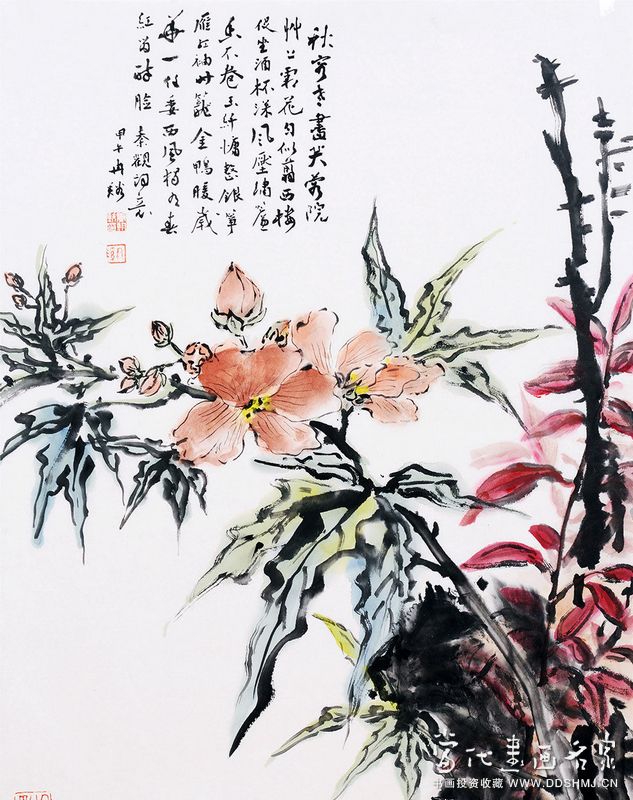 秋容老盡芙蓉院
艸上霜花匀似翦西樓
促坐酒杯深風壓繡簾
香不卷玉纤慵整銀箏
雁紅袖时籠金鴨暖歲
華一任委西風獨有春
紅留醉臉 秦觀词意
甲午
當代書画名家
书画投资收藏 WWW.DDSHMJ.CN